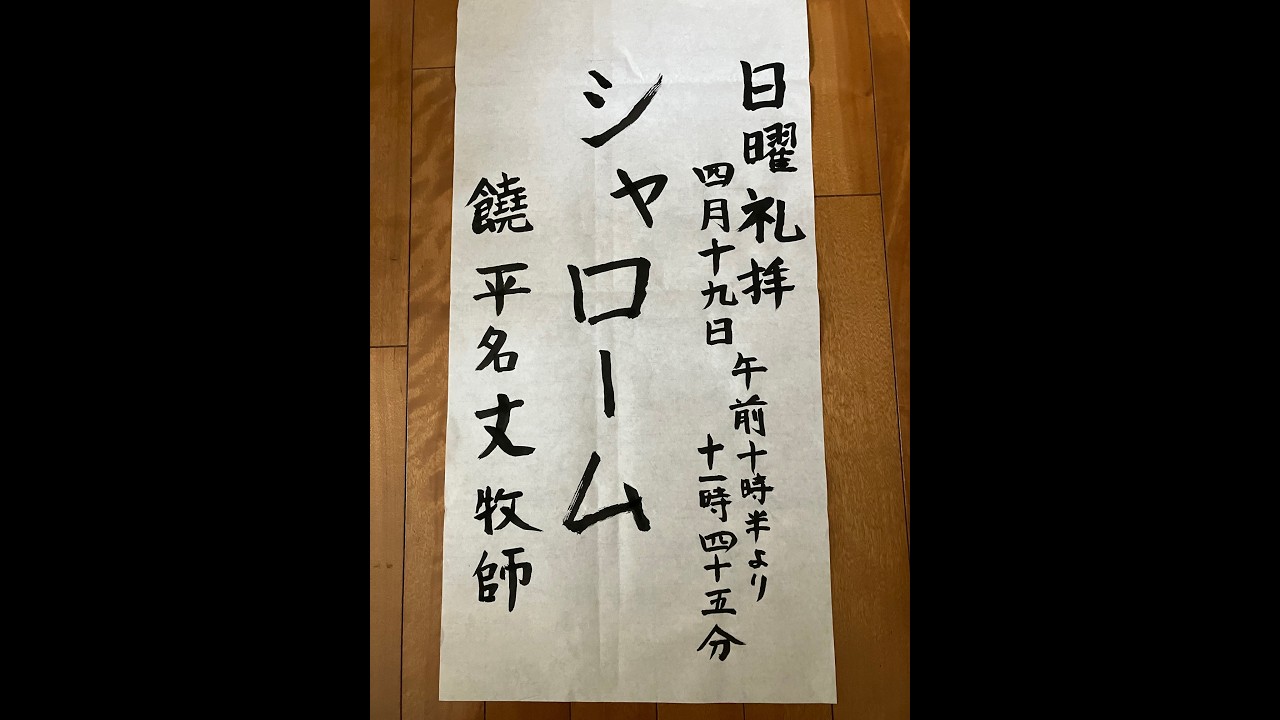 日曜礼拝 午前十時半より
四月十九日 十一時四十五分
シャローム
饒平名丈牧師